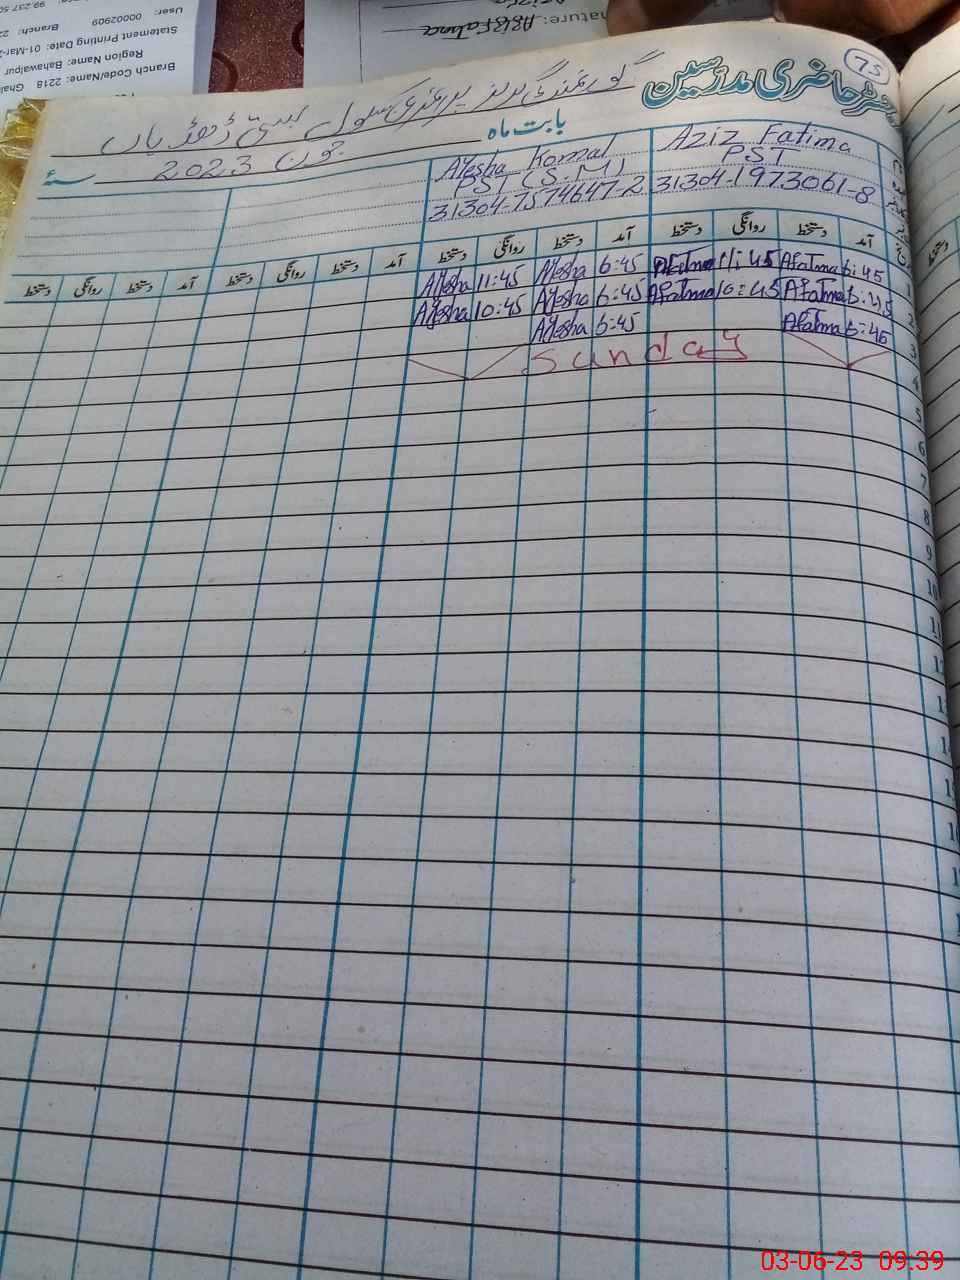 99.237.50
User: 00002909 Branch: 22
Statement Printing Date: 01-Mar-2
Region Name: Bahawalpur
Branch Code/Name: 2218 Ghal
nature: Aziz Fatma
75
رجسٹر حاضری مدرسین
گورنمنٹ گرلز پرائمری سکول بستی ڈھڈیاں
بابت ماہ جون 2023 سنہ
Aziz Fatima
PST
31304-1973061-8
Ayesha Komal
PST (S.M)
31304-7574647-2
آمد دستخط روانگی دستخط آمد دستخط روانگی دستخط آمد دستخط روانگی دستخط آمد دستخط روانگی دستخط
1 6:45 Afatma 11:45 Afatma 6:45 Ayesha 11:45 Ayesha
2 6:45 Afatma 10:45 Afatma 6:45 Ayesha 10:45 Ayesha
3 6:45 Afatma 6:45 Ayesha
4 Sunday
5
6
7
8
9
10
11
12
13
14
15
16
03-06-23 09:39